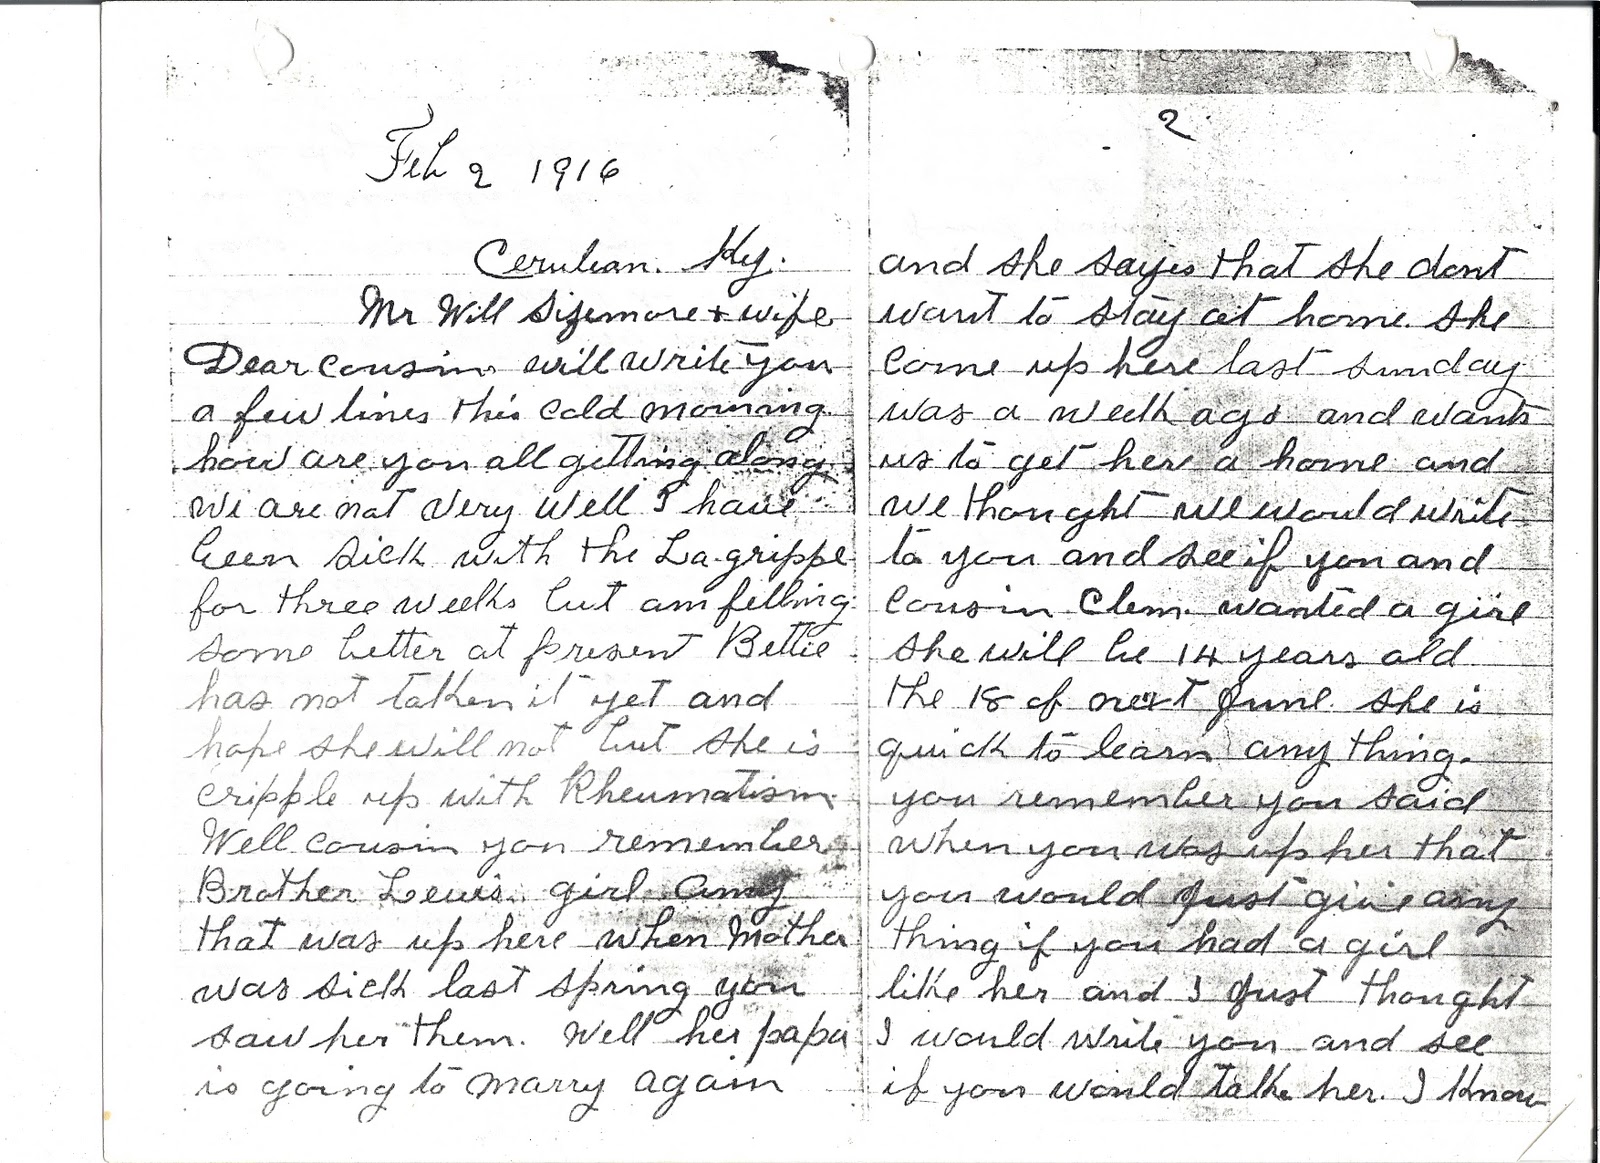 Feb 2 1916
Cerulean. Ky.
Mr Will Sizemore + wife
Dear cousin will write you
a few lines this cold morning
how are you all getting along
we are not very well I have
been sick with the Lagrippe
for three weeks but am felling
some better at present Bettie
has not taken it yet and
hope she will not but she is
cripple up with Rheumatism
Well cousin you remember
Brother Lewis. girl Amy
that was up here when Mother
was sick last spring you
saw her them. Well her papa
is going to marry again
2
and she sayes that she dont
want to stay at home. she
come up here last sunday
was a week ago and wants
us to get her a home and
we thought we would write
to you and see if you and
cousin Clem. wanted a girl
she will be 14 years old
the 18 of next June. she is
quick to learn any thing.
you remember you said
when you was up her that
you would Just give any
thing if you had a girl
like her and I Just thought
I would write you and see
if you would take her. I know